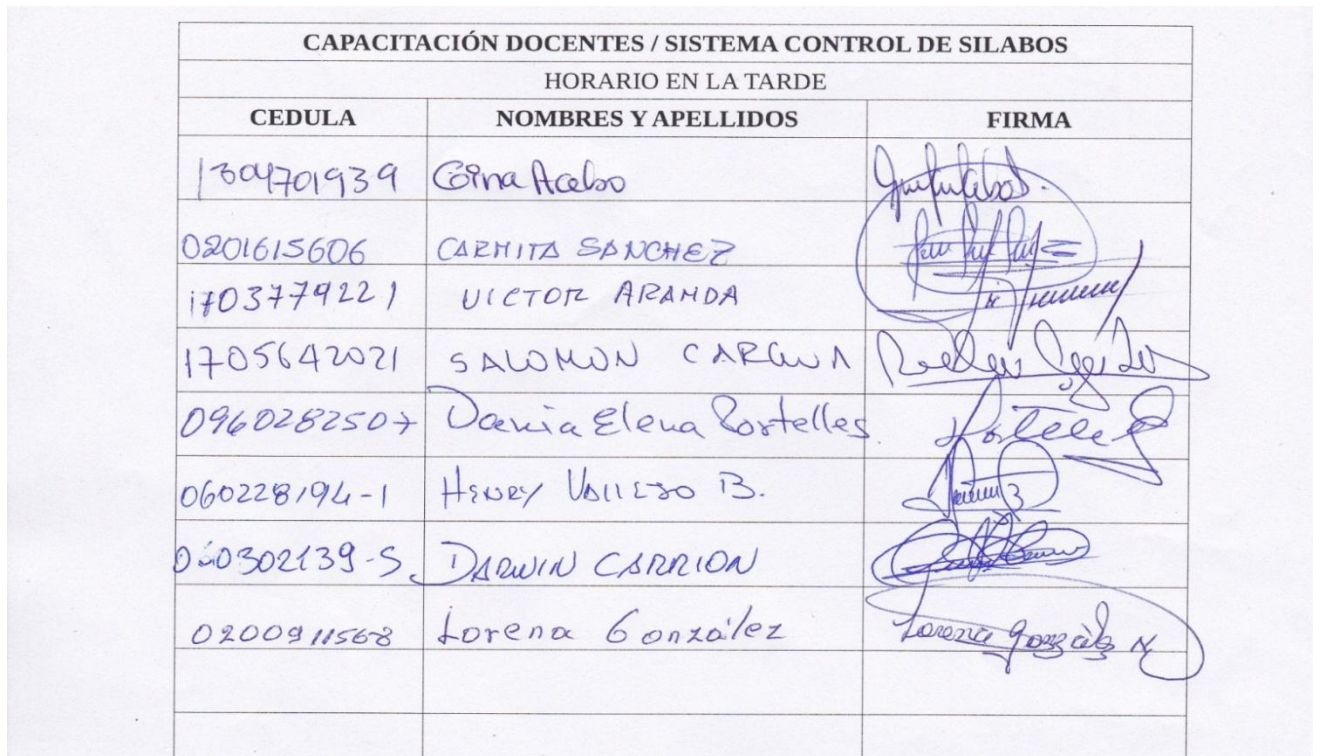 CAPACITACIÓN DOCENTES / SISTEMA CONTROL DE SILABOS
HORARIO EN LA TARDE
CEDULA NOMBRES Y APELLIDOS FIRMA
1304701939 Gina Acebo
0201615606 CARMITA SANCHEZ
1703779221 VICTOR ARANDA
1705642021 SALOMON
0960282507 Dania Elena Portelles
060228194-1 HENRY VALLEJO B.
060302139-5 DARWIN CARRION
0200911568 Lorena González Lorena González N